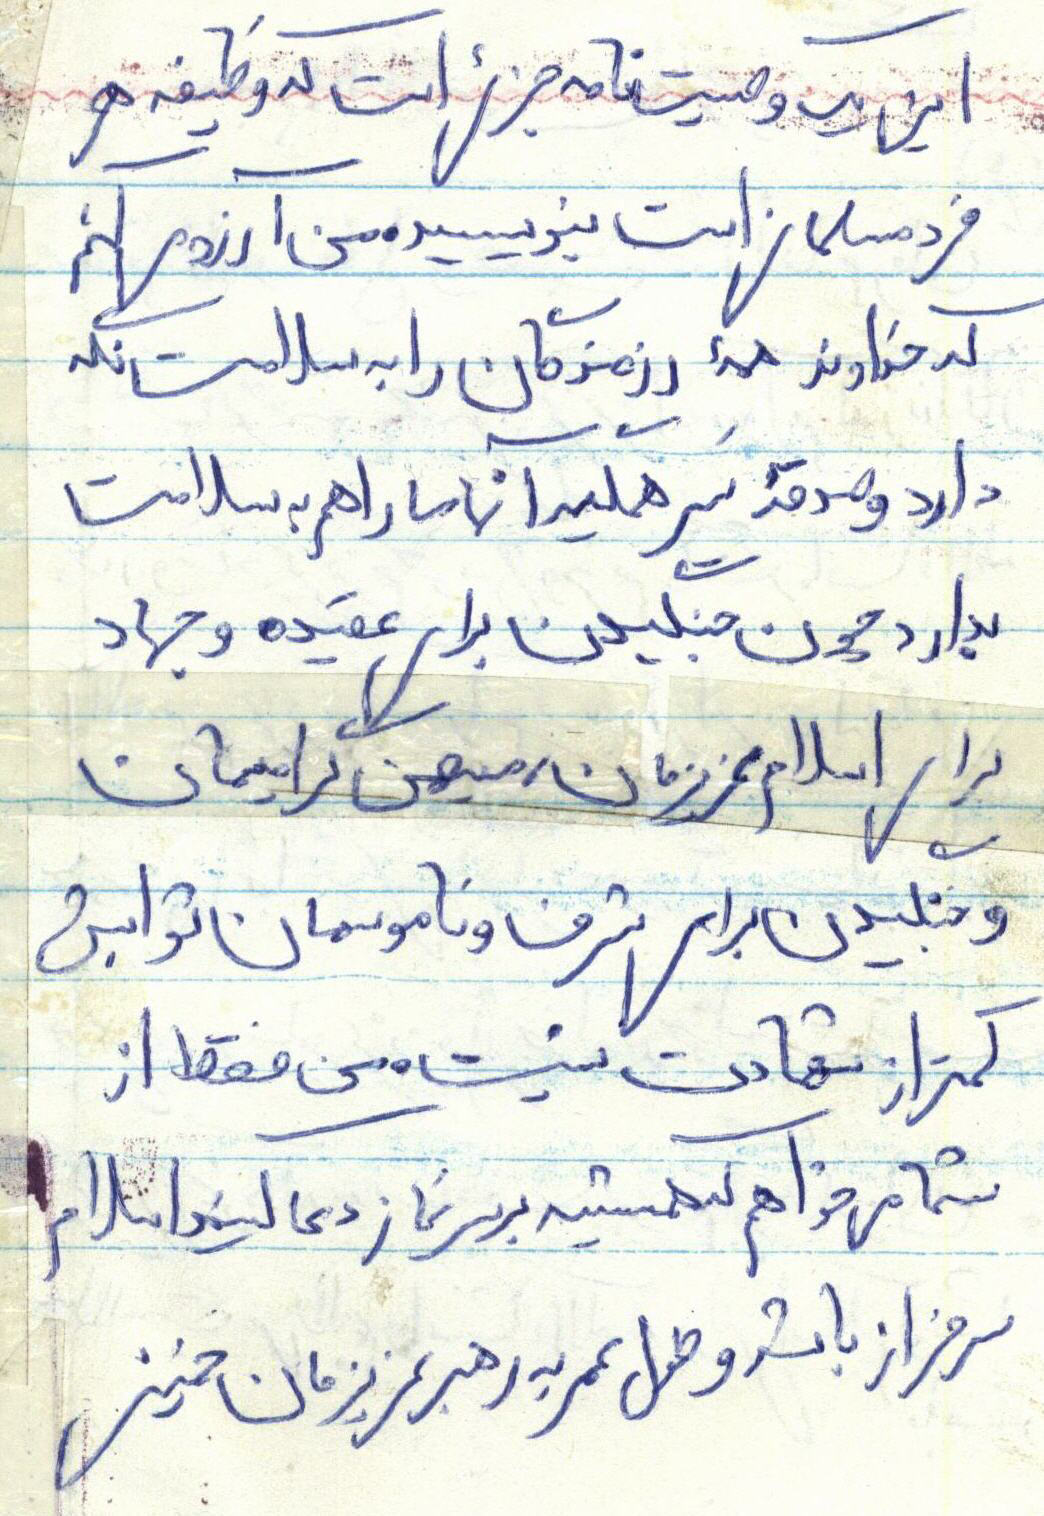 این یک وصیت نامه جزئی است که وظیفه هر
فرد مسلمان است بنویسید من آرزو می کنم
که خداوند همهٔ رزمندگان را به سلامت نگه
دارد و صدقهٔ سر همگی آنها ما را هم به سلامت
بدارد چون جنگیدن برای عقیده و جهاد
برای اسلام عزیزمان میهن گرامیمان
و جنگیدن برای شرف و ناموسمان ثوابش
کمتر از شهادت نیست من فقط از
شما می خواهم که همیشه بر سر نماز دعا کنید اسلام
سرفراز باشد و طول عمر به رهبر عزیزمان خمینی